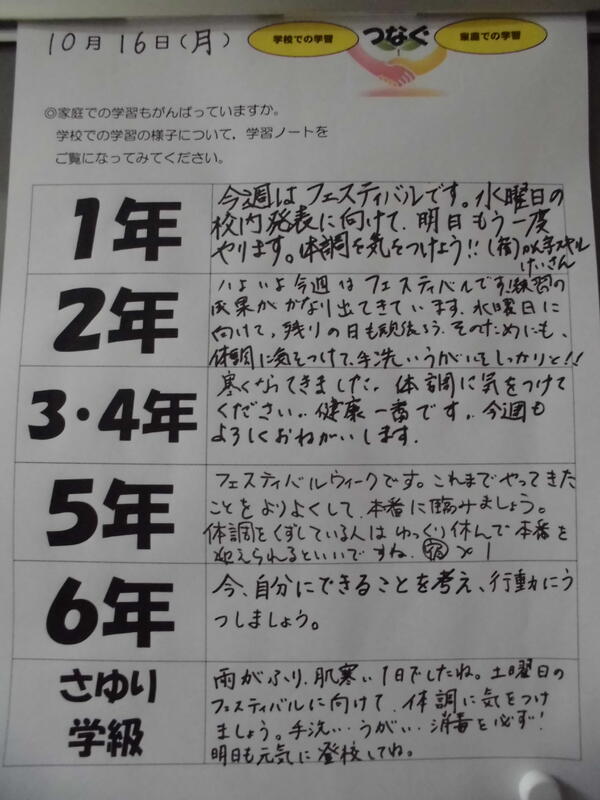 10月16日(月)
学校での学習
つなぐ
家庭での学習
◎家庭での学習もがんばっていますか。
学校での学習の様子について，学習ノートを
ご覧になってみてください。
1年
今週はフェスティバルです。水曜日の
校内発表に向けて、明日もう一度
やります。体調を気をつけよう!!(宿)かん字スキル
けいさん
2年
いよいよ今週はフェスティバルです!練習の
成果がかなり出てきています。水曜日に
向けて、残りの日も頑張ろう。そのためにも、
体調に気をつけて、手洗いうがいをしっかりと!!
3・4年
寒くなってきました。体調に気をつけて
ください。健康一番です。今週も
よろしくおねがいします。
5年
フェスティバルウィークです。これまでやってきた
ことをよりよくして、本番に臨みましょう。
体調をくずしている人はゆっくり休んで本番を
迎えられるといいですね。宿×1
6年
今、自分にできることを考え、行動にう
つしましょう。
さゆり
学級
雨がふり、肌寒い1日でしたね。土曜日の
フェスティバルに向けて、体調に気をつけ
ましょう。手洗い・うがい・消毒を必ず!
明日も元気に登校してね。